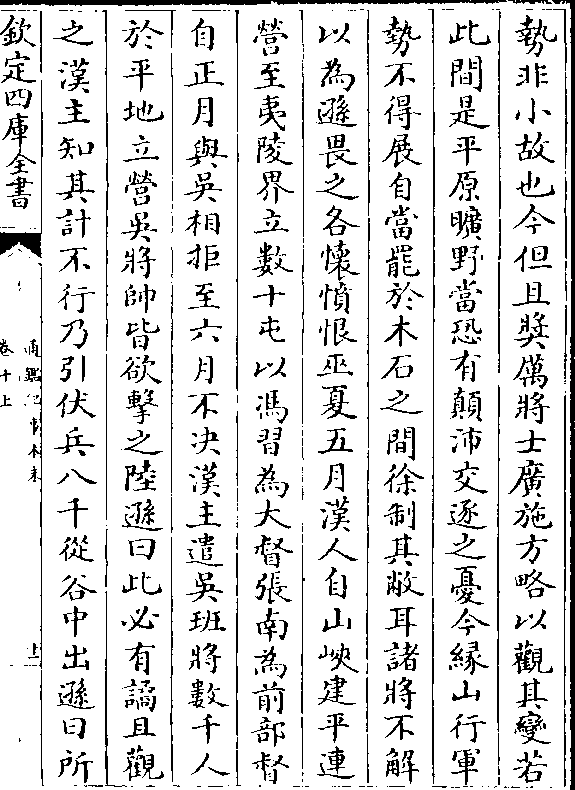 勢非小故也今但且奨厲將士廣施方略以觀其變若
此間是平原曠野當恐有顛沛交逐之憂今縁山行軍
勢不得展自當罷於木石之間徐制其敝耳諸將不解
以為遜畏之各懷憤恨巫夏五月漢人自山峽建平連
營至夷陵界立數十屯以馮習為大督張南為前部督
自正月與吳相拒至六月不决漢主遣吳班將數千人
於平地立營吳將帥皆欲擊之陸遜曰此必有譎且觀
之漢主知其計不行乃引伏兵八千從谷中出遜曰所
欽定四庫全書
通鑑紀事本末
卷十上